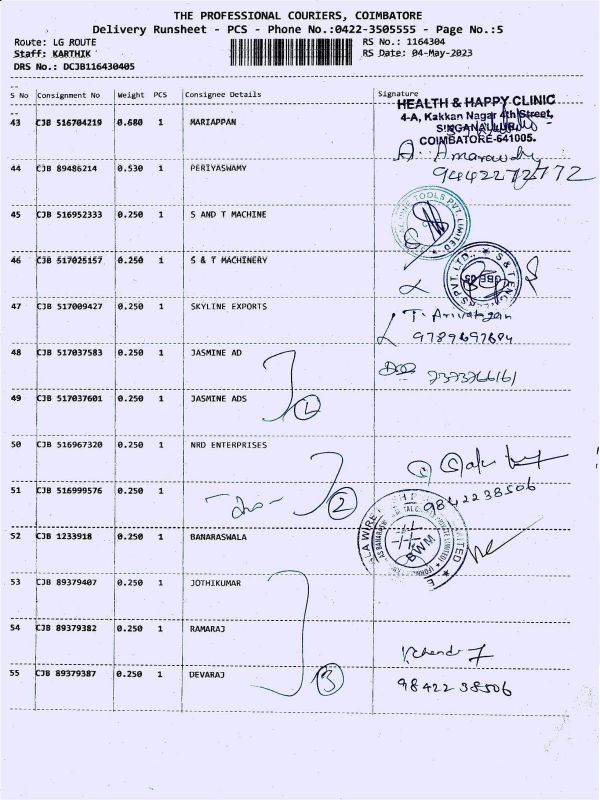 THE PROFESSIONAL COURIERS, COIMBATORE
Delivery Runsheet - PCS - Phone No.:0422-3505555 - Page No.:5
Route: LG ROUTE RS No.: 1164304
Staff: KARTHIK RS Date: 04-May-2023
DRS No.: DCJB116430405
S No Consignment No Weight PCS Consignee Details Signature
HEALTH & HAPPY CLINIC
4-A, Kakkan Nagar 4th Street,
SINGANALLUR,
COIMBATORE-641005.
43 CJB 516704219 0.680 1 MARIAPPAN
44 CJB 89486214 0.530 1 PERIYASWAMY
9442272772
45 CJB 516952333 0.250 1 S AND T MACHINE
TOOLS PVT. LIMITED
46 CJB 517025157 0.250 1 S & T MACHINERY
47 CJB 517009427 0.250 1 SKYLINE EXPORTS
48 CJB 517037583 0.250 1 JASMINE AD
7373766161
49 CJB 517037601 0.250 1 JASMINE ADS
50 CJB 516967320 0.250 1 NRD ENTERPRISES
51 CJB 516999576 0.250 1
2
9842238506
52 CJB 1233918 0.250 1 BANARASWALA
BWM
53 CJB 89379407 0.250 1 JOTHIKUMAR
54 CJB 89379382 0.250 1 RAMARAJ
55 CJB 89379387 0.250 1 DEVARAJ
3
9842238506